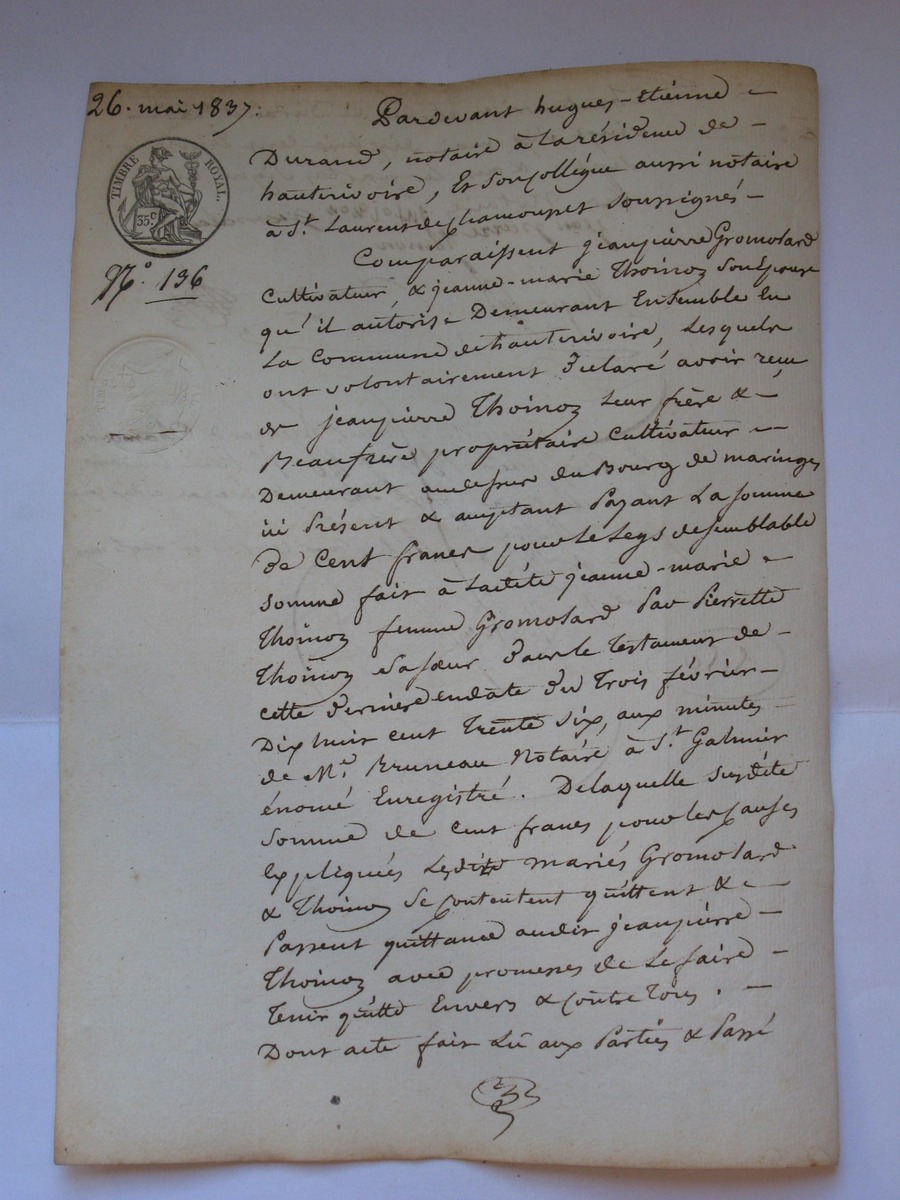 26. mai 1837.
Pardevant hugues-Etienne
Durand, notaire à la résidence de
hauterivoire, Et son collégue aussi notaire
à St. Laurent de chamousset soussignés
TIMBRE ROYAL.
35c.
N° 136
Comparaissent jeanpierre Gromolard
Cultivateur, & jeanne-marie Thoinoz son Epouse
qu'il autorise Demeurant Ensemble En
La Commune de hauterivoire, Lesquels
ont volontairement Déclaré avoir recu
de jeanpierre Thoinoz Leur frère &
Beaufrère propriétaire Cultivateur
Demeurant au du Bourg de maringes
ici Présent & acceptant Payant La somme
De Cent francs pour le Legs de semblable
somme fait à Ladite jeanne-marie
Thoinoz femme Gromolard Par Pierrette
Thoinoz sa sœur Dans le Testament de
cette Dernière en date du Trois février
Dix huit cent Trente Six, aux minutes
de Me. Bruneau Notaire à St. Galmier
énomé Enregistré. De laquelle susdite
Somme de Cent francs pour les causes
Expliquées Lesdits mariés Gromolard
& Thoinoz se contentent quittent &
Passent quittance audit jeanpierre
Thoinoz avec promesses de Le faire
Tenir quitte Envers & contre Tous.
Dont acte fait Lu aux Parties & Passé